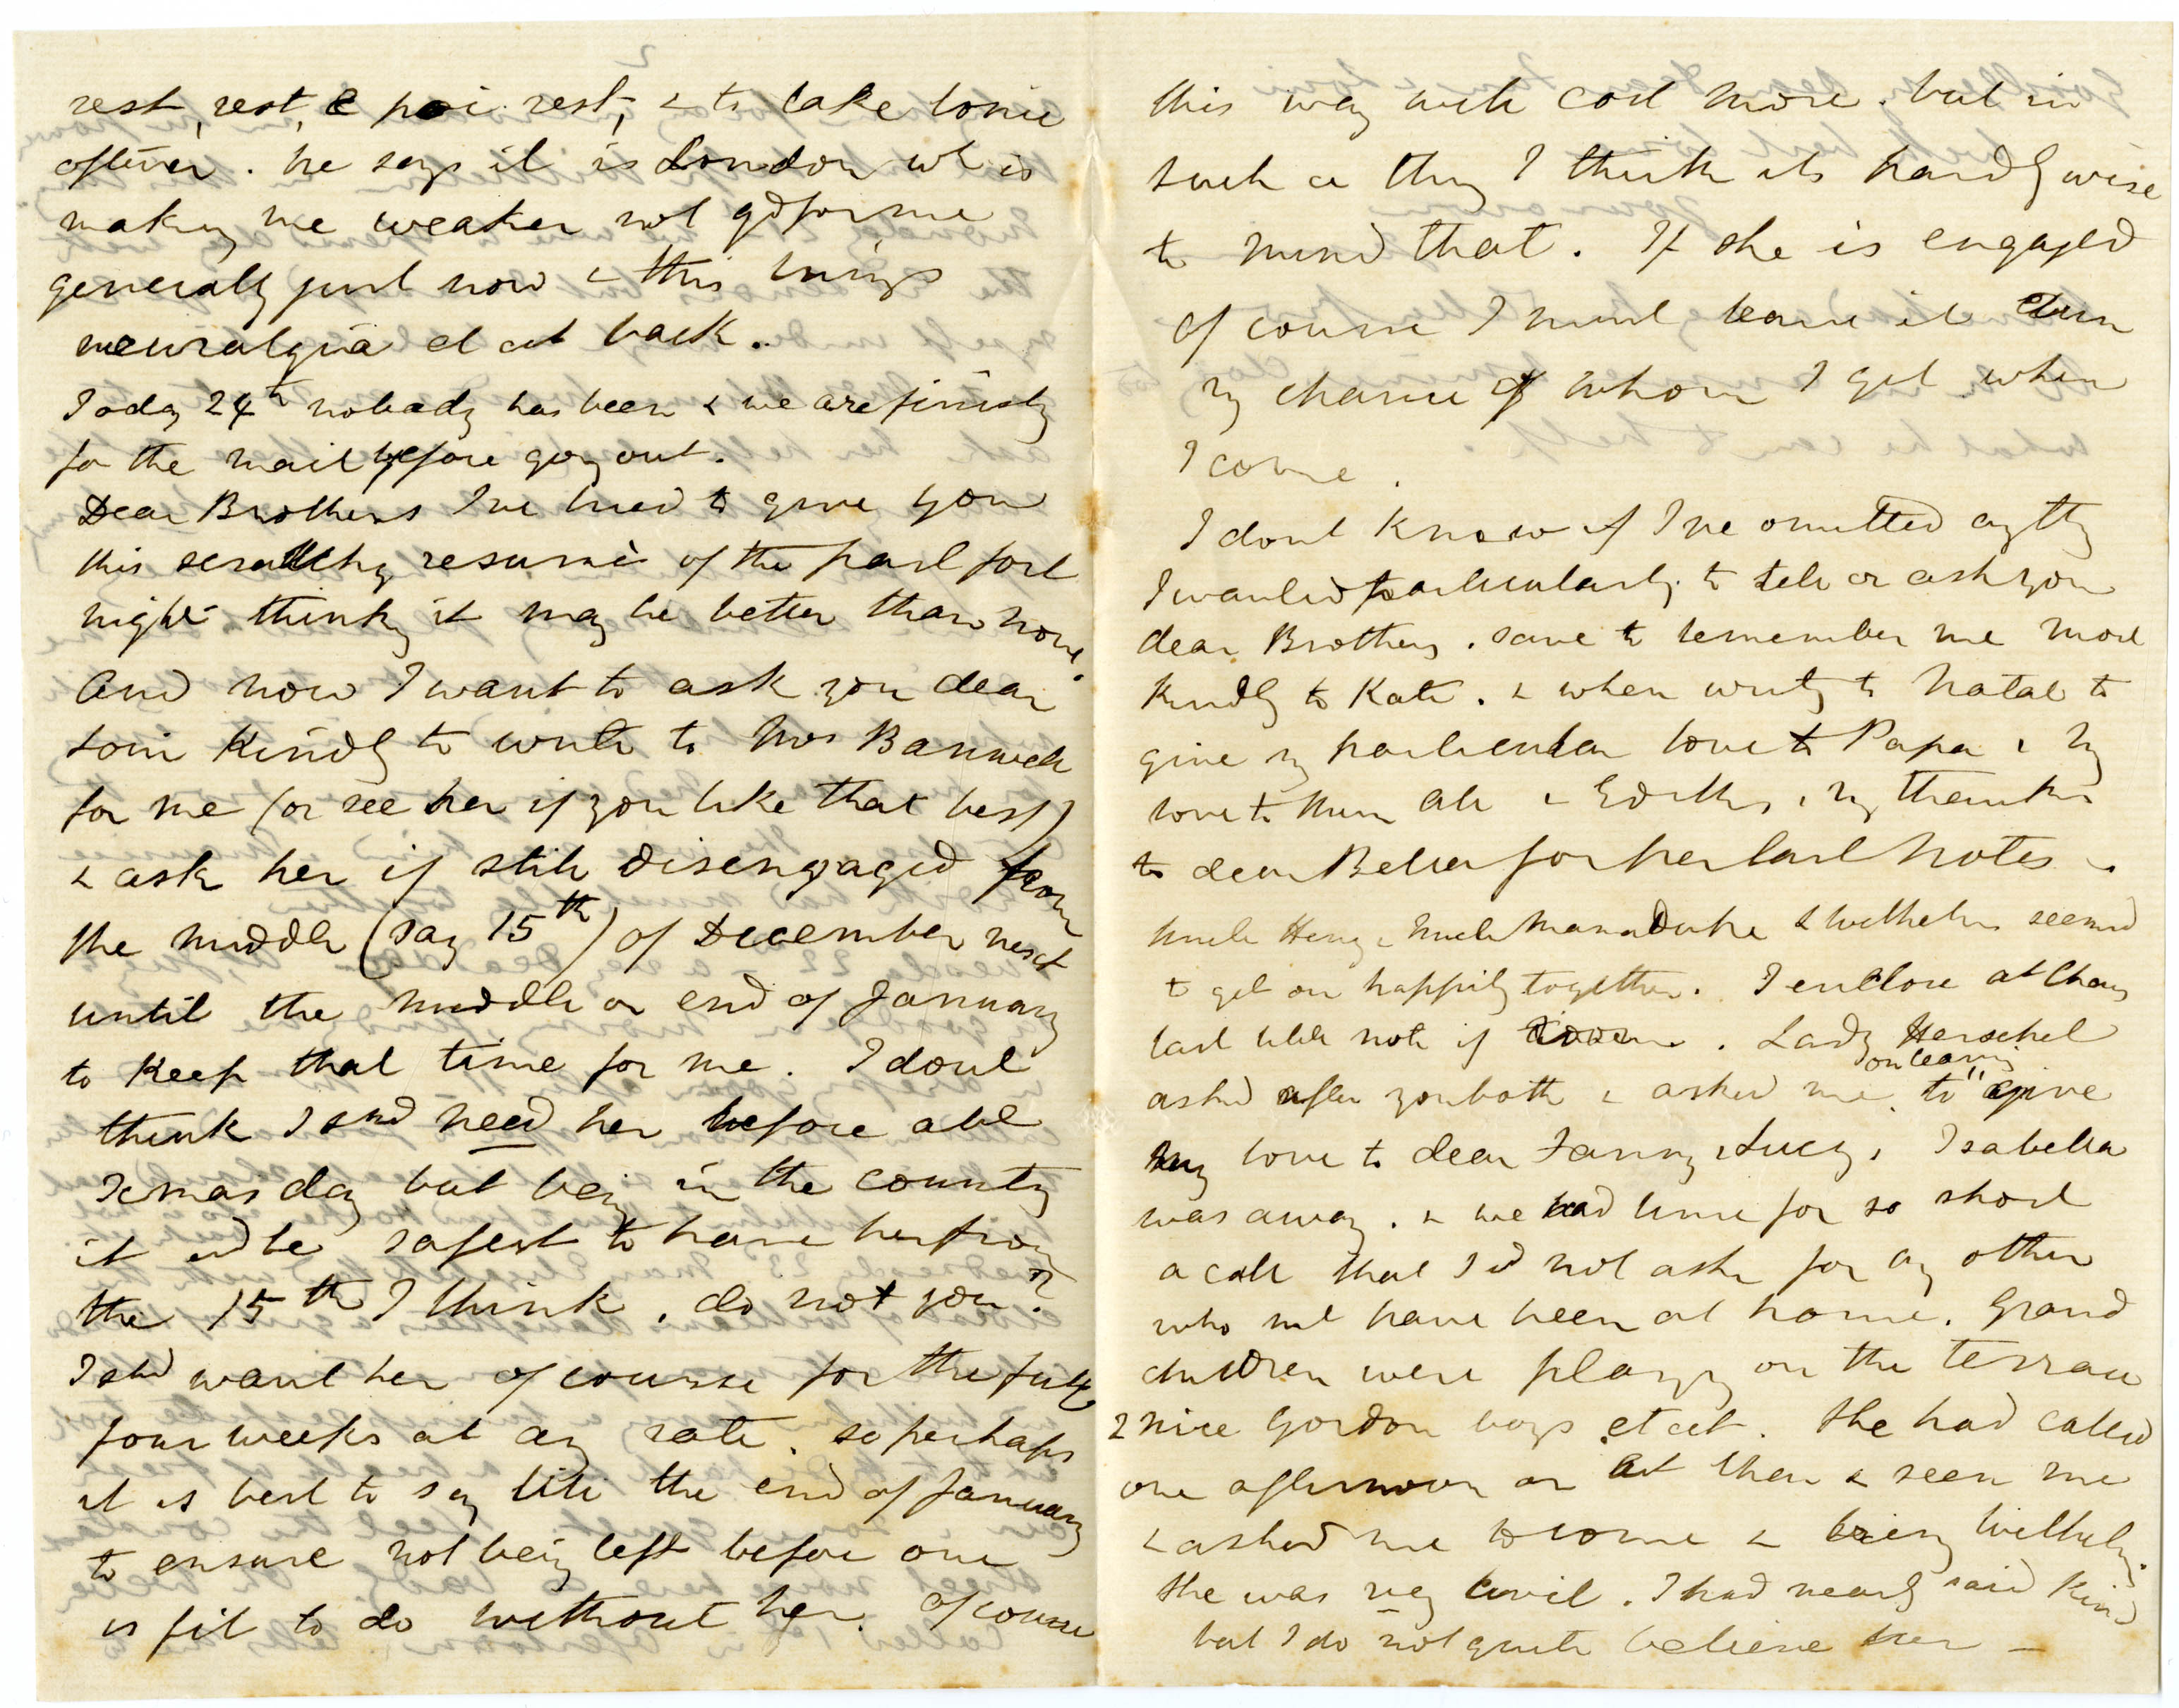 rest, rest, & rest, & to take tonic
often. he says it is London wh is
making me weaker not gd for me
generally just now & this brings
neuralgia et cet back.
Today 24th nobody has been & we are finishg
for the mail before gog out.
Dear Brothers I've tried to give you
this scratchy resumé of the past fort
night thinkg it may be better than none.
And now I want to ask you dear
Tom kindly to write to Mrs Banwell
for me (or see her if you like that best)
& ask her if still disengaged from
the middle (say 15th) of December next
until the middle or end of January
to keep that time for me. I dont
think I shd need her before abt
Xmas day but beig in the country
it wd be safest to have her from
the 15th I think. do not you?
I shd want her of course for the full
four weeks at any rate. so perhaps
it is best to say till the end of January
to ensure not beig left before one
is fit to do without her. Of course
this way will cost more. but in
such a thing I think its hardly wise
to mind that. If she is engaged
of course I must leave it
my chance of whom I get when
I come.
I dont know if I've omitted anythg
I wanted particularly to tell or ask you
dear Brothers. save to remember me most
kindly to Kate. & when writg to Natal to
give my particular love to Papa & my
love to them all & Ediths, my thanks
to dear Bella for her last notes.
Uncle Henry & Uncle Marmaduke & Wilhelm seemed
to get on happily together. I enclose at
last little note if . Lady Herschel
on leavig
asked after you both & asked me to give
my love to dear Fanny & Lucy, Isabella
was away. & we had time for so short
a call that I d not ask for any other
who mt have been at home. Grand
children were playg on the terrace
2 nice Gordon boys et cet. She had called
one afternoon on then & seen me
& asked me to come & bring Wilhelm.
She was very civil. I had nearly said kind
but I do not quite believe her —